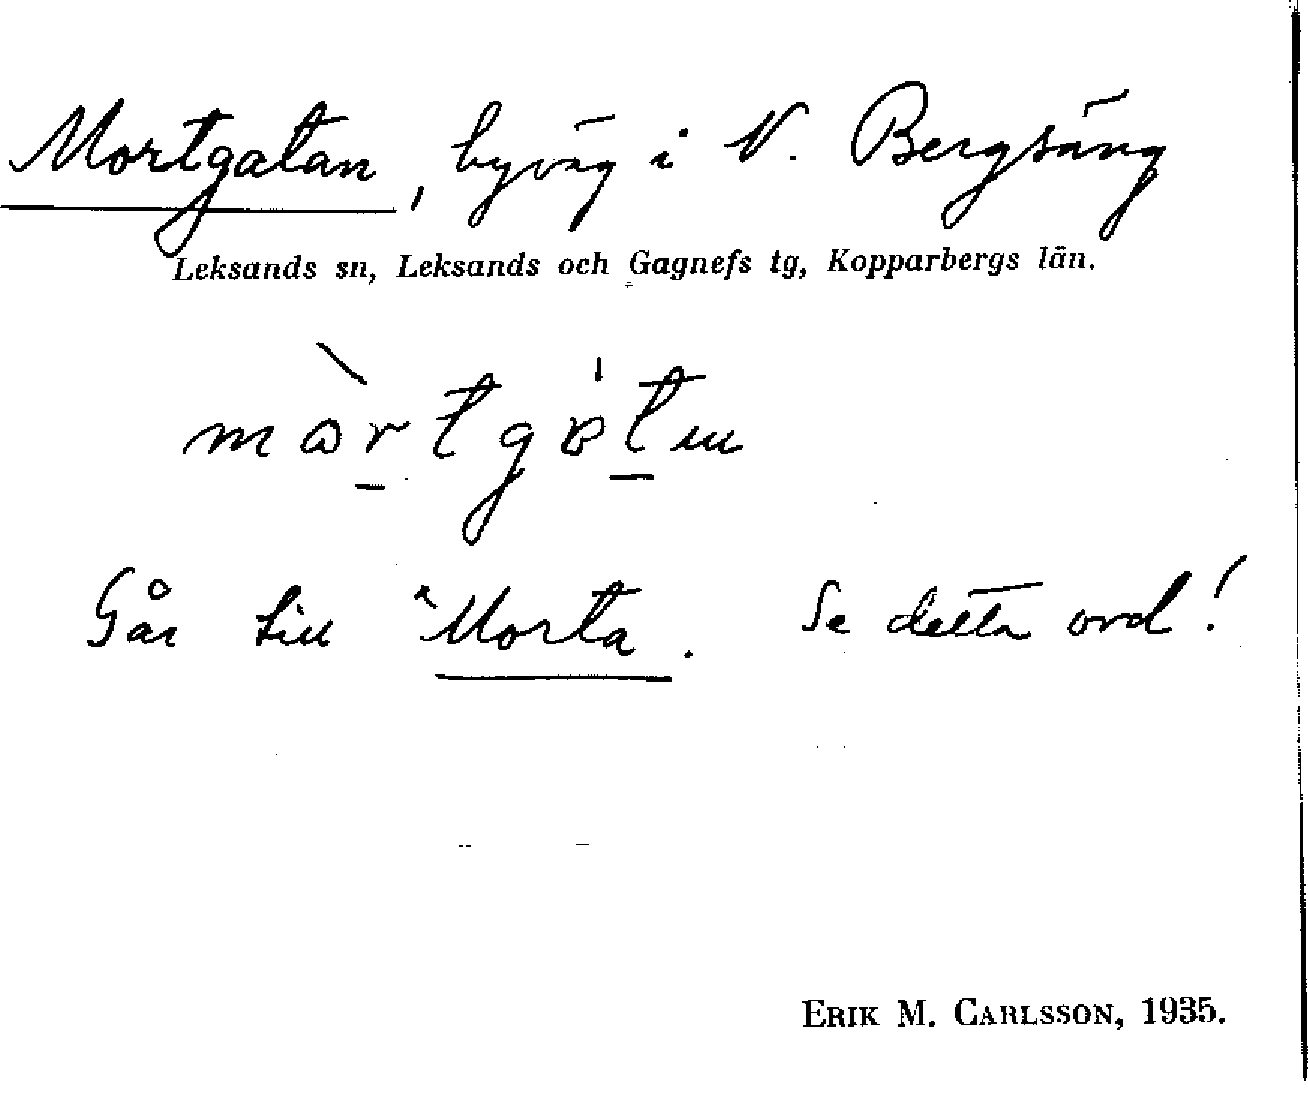 Mortgatan, byväg i N. Bergsäng
Leksands sn, Leksands och Gagnefs tg, Kopparbergs län.
Går till ˣMorta. Se detta ord!
ERIK M. CARLSSON, 1935.